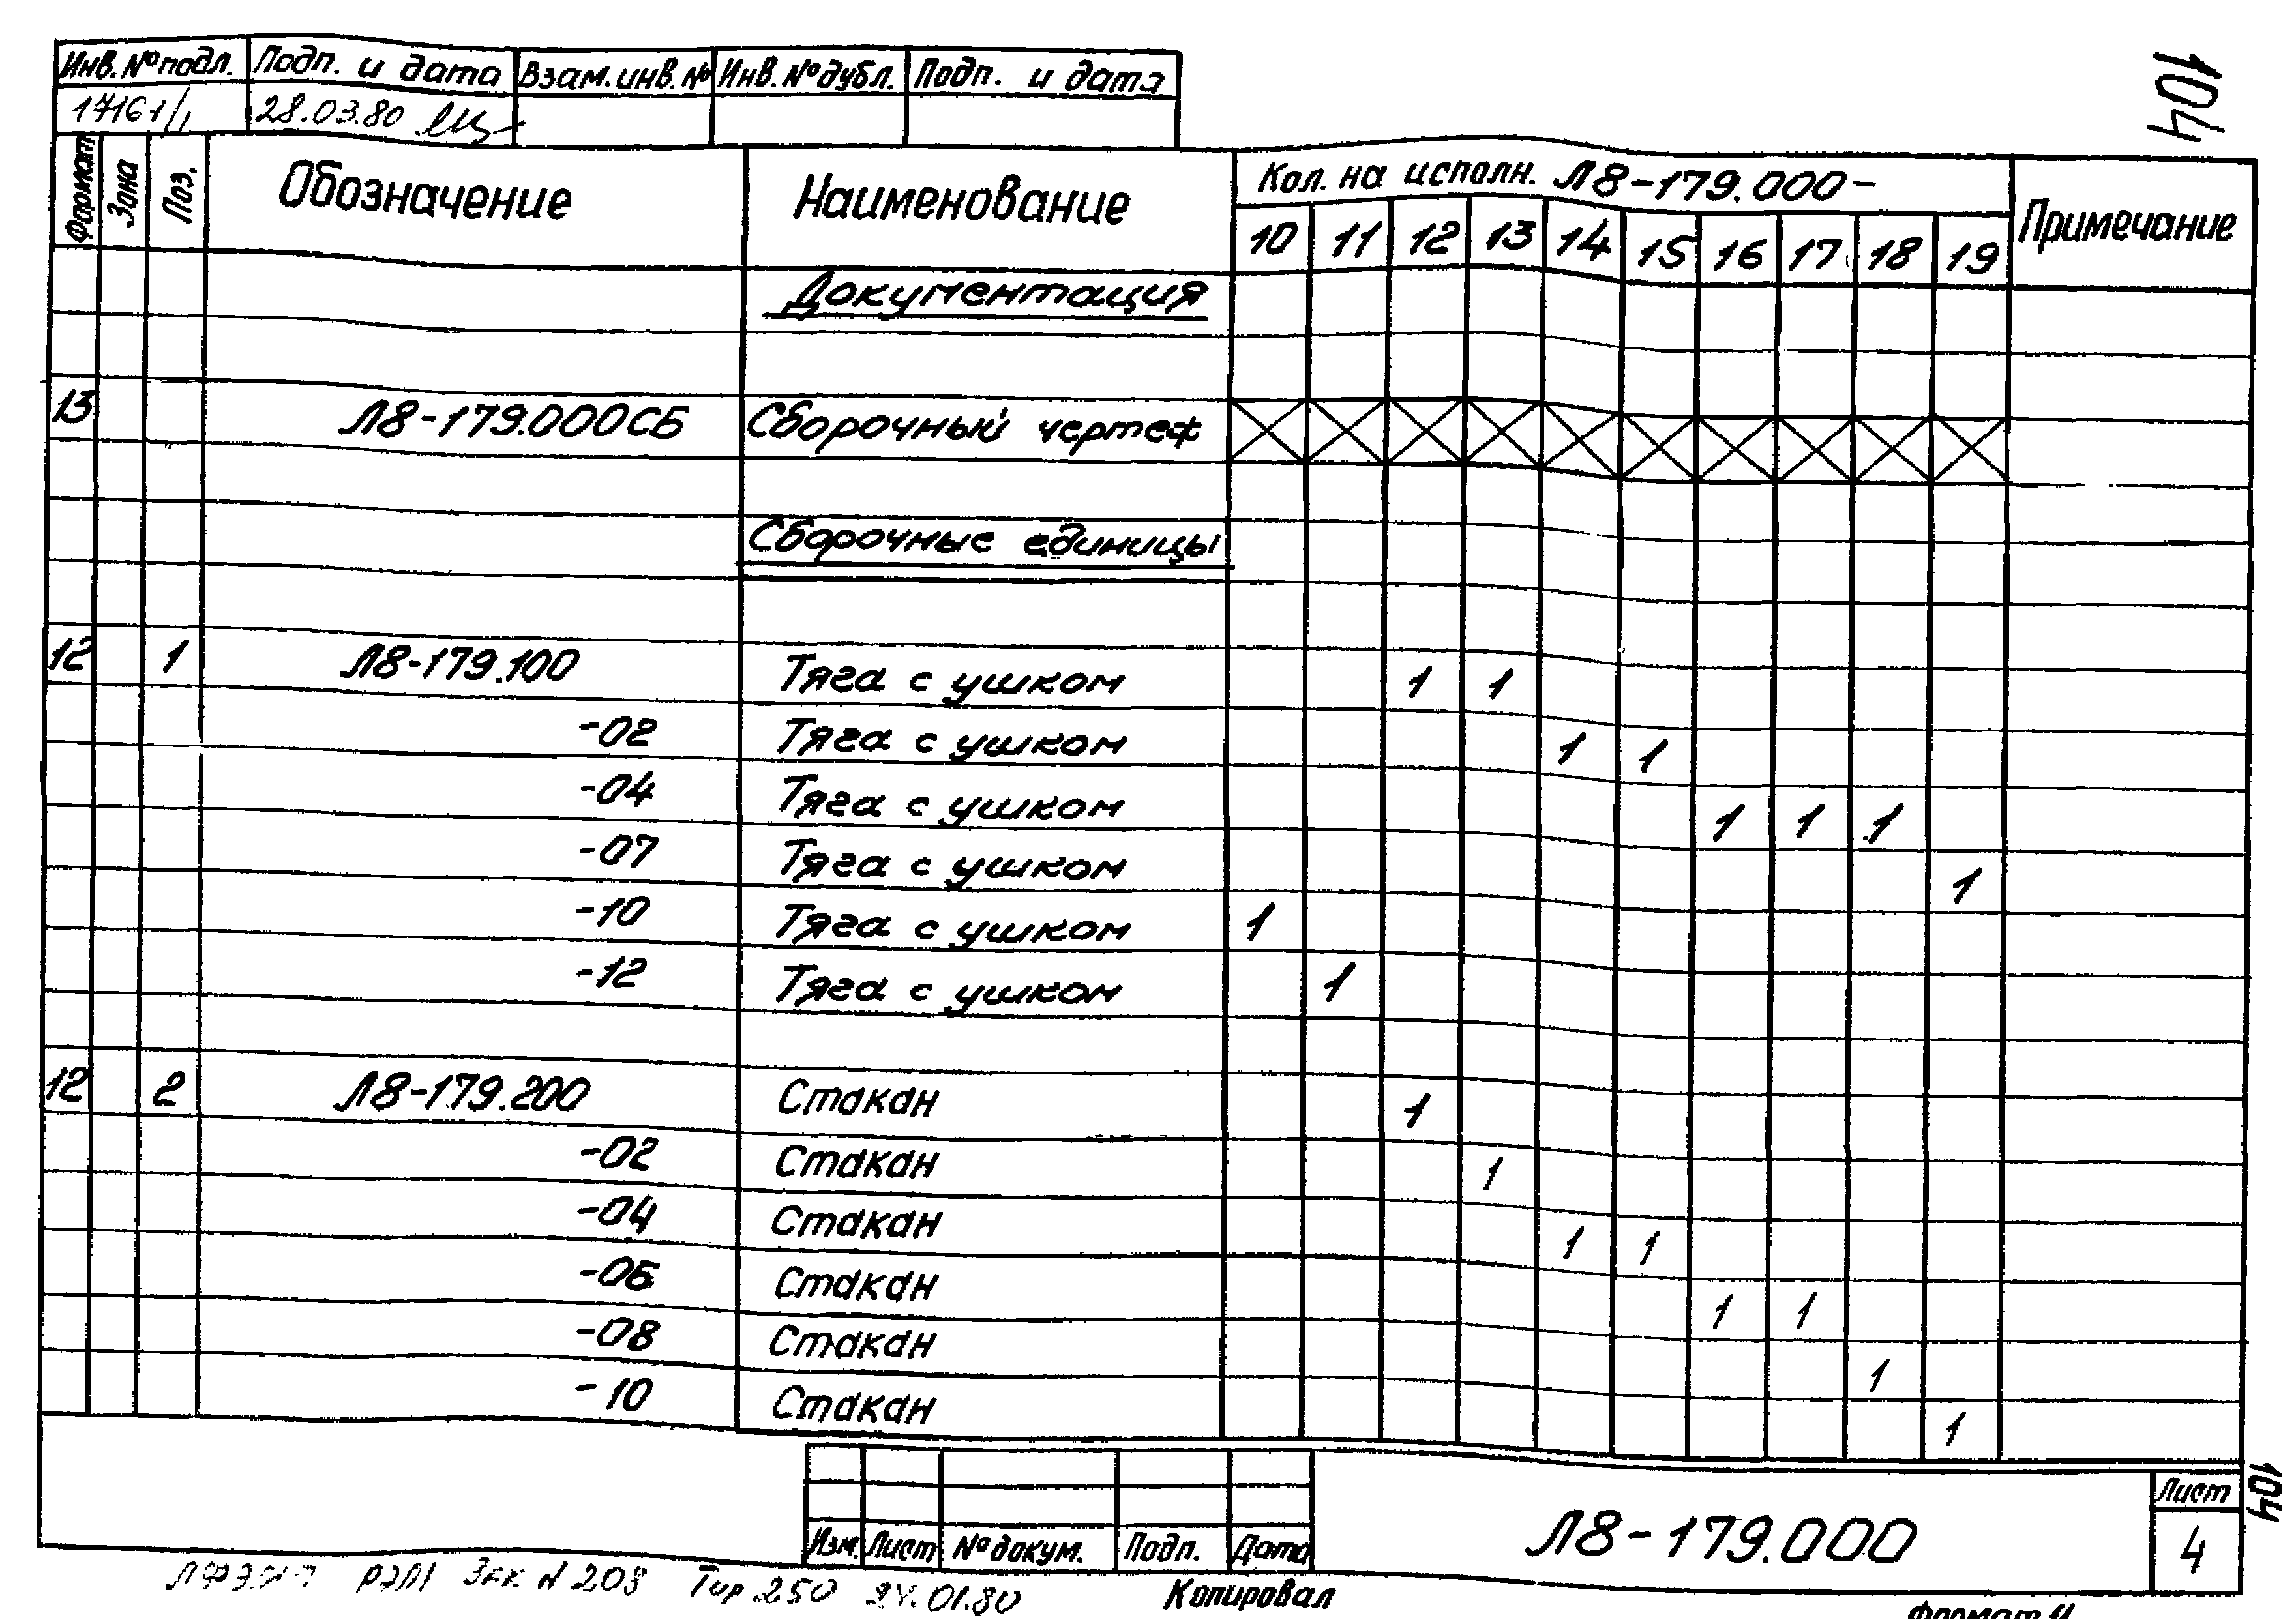 104
Инв. № подл. Подп. и дата Взам. инв. № Инв. № дубл. Подп. и дата
17161/1 28.03.80
Формат Зона Поз. Обозначение Наименование Кол. на исполн. Л8-179.000- Примечание
10 11 12 13 14 15 16 17 18 19
Документация
13 Л8-179.000СБ Сборочный чертеж
Сборочные единицы
12 1 Л8-179.100 Тяга с ушком 1 1
-02 Тяга с ушком 1 1
-04 Тяга с ушком 1 1 1
-07 Тяга с ушком 1
-10 Тяга с ушком 1
-12 Тяга с ушком 1
12 2 Л8-179.200 Стакан 1
-02 Стакан 1
-04 Стакан 1 1
-06 Стакан 1 1
-08 Стакан 1
-10 Стакан 1
104
Изм. Лист № докум. Подп. Дата Л8-179.000 Лист
4
Зак N 208 Тир 250 24.01.80 Копировал
Формат 11